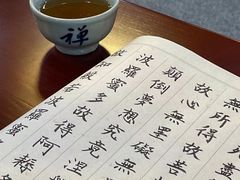 禪
無所得故菩
故心無罣礙無
顛倒夢想究竟涅
波羅蜜多故得阿耨
知般若波羅蜜